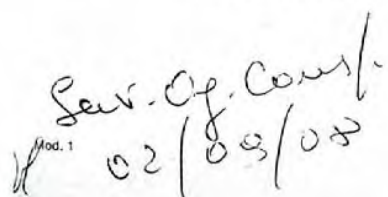 Ser. Og. Cons/.
Mod. 1
02/09/08